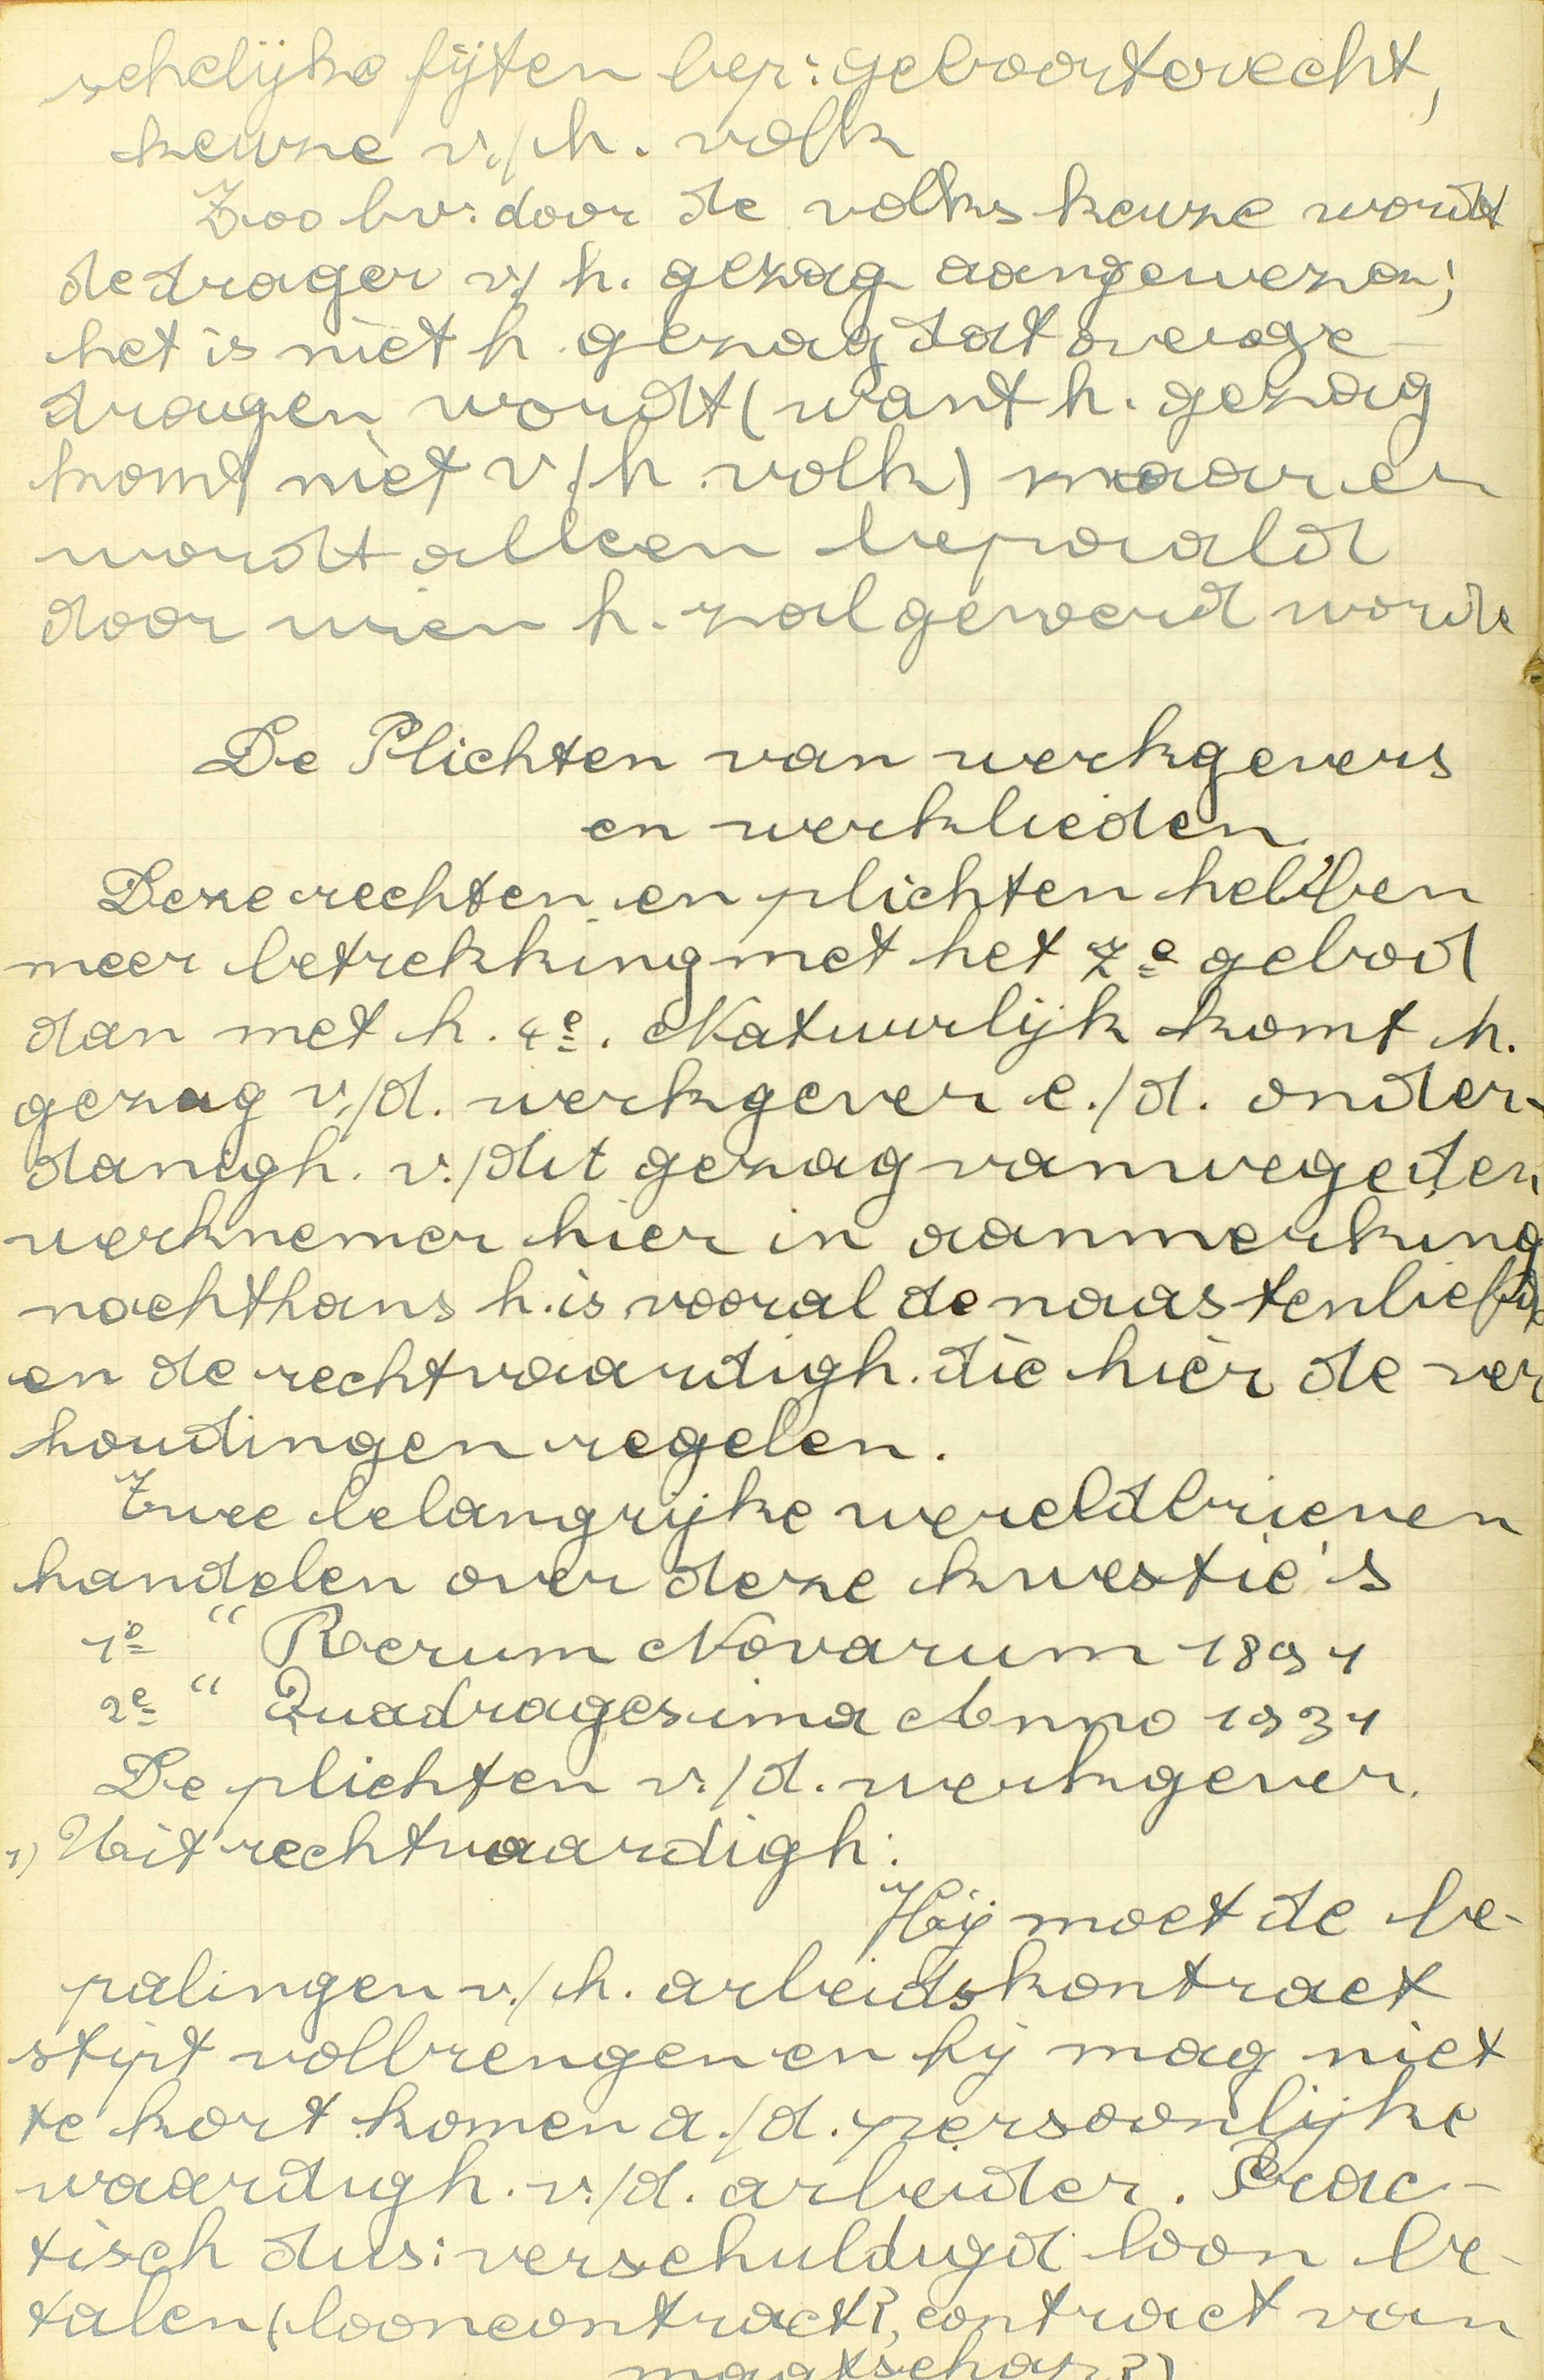 schelijke fijten bep: geboorterecht,
keuze v./h. volk
Zoo bv: door de volkskeuze wordt
de drager v/ h. gezag aangewezen;
het is niet h. gezag dat overge-
dragen wordt (want h. gezag
komt niet v/h volk) maar er
wordt alleen bepaald
door wien h. zal gevoerd worde
De Plichten van werkgevers
en werklieden
Deze rechten en plichten hebben
meer betrekking met het 7e gebod
dan met h. 4e. Natuurlijk komt h.
gezag v./d. werkgever e./d. onder-
danigh. v./dit gezag vanwege den
werknemer hier in aanmerking
nochthans h. is vooral de naastenliefde
en de rechtvaardigh. die hier de ver
houdingen regelen.
Twee belangrijke wereldbrieven
handelen over deze kwestie's
1e " Rerum Novarum 1891
2e " Quadragesima Anno 1931
De plichten v./d. werkgever.
1) Uit rechtvaardigh:
Hij moet de be-
palingen v./h. arbeidskontract
stipt volbrengen en hij mag niet
te kort komen a./d. persoonlijke
waardigh. v./d. arbeider. Prac-
tisch dus: verschuldigd loon be-
talen (looncontract?, contract van
maatschap?)